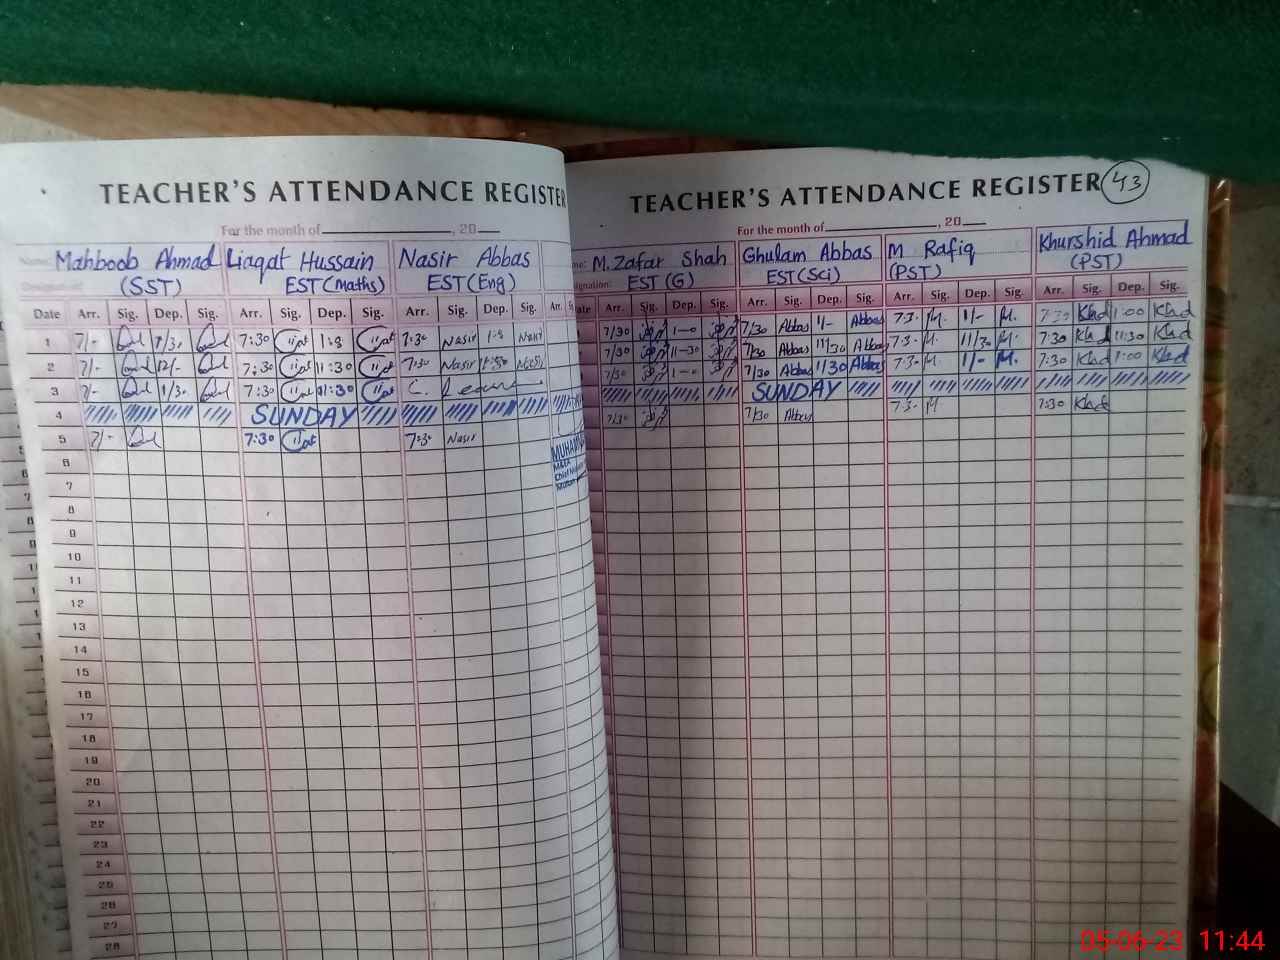 TEACHER'S ATTENDANCE REGISTER
For the month of , 20
Name: Mahboob Ahmad Liaqat Hussain Nasir Abbas
Designation: (SST) EST (Maths) EST (Eng)
Date Arr. Sig. Dep. Sig. Arr. Sig. Dep. Sig. Arr. Sig. Dep. Sig. Arr.
1 7/- 7:30 1:8 7:30 Nasir 1:8 Nasir
2 7/- 12/- 7:30 11:30 7:30 Nasir 11:30 Nasir
3 7/- 11/30 7:30 11:30 C. Leave
4 SUNDAY
5 7/- 7:30 7:30 Nasir
6
7
8
9
10
11
12
13
14
15
16
17
18
19
20
21
22
23
24
25
26
27
28
TEACHER'S ATTENDANCE REGISTER 43
For the month of , 20
M. Zafar Shah Ghulam Abbas M Rafiq Khurshid Ahmad
EST (G) EST (Sci) (PST) (PST)
Arr. Sig. Dep. Sig. Arr. Sig. Dep. Sig. Arr. Sig. Dep. Sig. Arr. Sig. Dep. Sig.
7/30 1-0 7/30 Abbas 1/- Abbas 7:30 M. 1/- M. 7:30 Khd 1:00 Khd
7/30 11-30 7/30 Abbas 11/30 Abbas 7:30 M. 11/30 M. 7:30 Khd 11:30 Khd
7/30 1-0 7/30 Abbas 11/30 Abbas 7:30 M. 1/- M. 7:30 Khd 1:00 Khd
SUNDAY
7/30 7/30 Abbas 7:30 M. 7:30 Khd
05-06-23 11:44